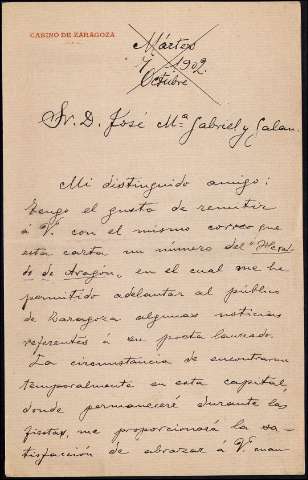 CASINO DE ZARAGOZA
Martes
7 1902
Octubre
Sr. D. José Mª Gabriel y Galan.
Mi distinguido amigo:
Tengo el gusto de remitir
á V. con el mismo correo que
esta carta un número del "Heral-
do de Aragon", en el cual me he
permitido adelantar al público
de Zaragoza algunas noticias
referentes á su poeta laureado.
La circunstancia de encontrarme
temporalmente en esta capital,
donde permaneceré durante las
fiestas, me proporcionará la sa-
tisfacción de abrazar á V. cuan-